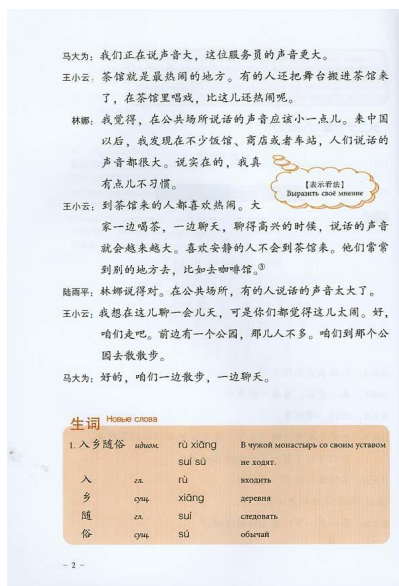 马大为：我们正在说声音大，这位服务员的声音更大。
王小云：茶馆就是最热闹的地方。有的人还把舞台搬进茶馆来
了，在茶馆里唱戏，比这儿还热闹呢。
林娜：我觉得，在公共场所说话的声音应该小一点儿。来中国
以后，我发现在不少饭馆、商店或者车站，人们说话的
声音都很大。说实在的，我真
有点儿不习惯。
【表示看法】
Выразить своё мнение
王小云：到茶馆来的人都喜欢热闹。大
家一边喝茶，一边聊天，聊得高兴的时候，说话的声音
就会越来越大。喜欢安静的人不会到茶馆来。他们常常
到别的地方去，比如去咖啡馆。③
陆雨平：林娜说得对。在公共场所，有的人说话的声音太大了。
王小云：我想在这儿聊一会儿天，可是你们都觉得这儿太闹。好，
咱们走吧。前边有一个公园，那儿人不多。咱们到那个公
园去散散步。
马大为：好的，咱们一边散步，一边聊天。
生词 Новые слова
1. 入乡随俗 идиом. rù xiāng В чужой монастырь со своим уставом
suí sú не ходят.
入 гл. rù входить
乡 сущ. xiāng деревня
随 гл. suí следовать
俗 сущ. sú обычай
– 2 –